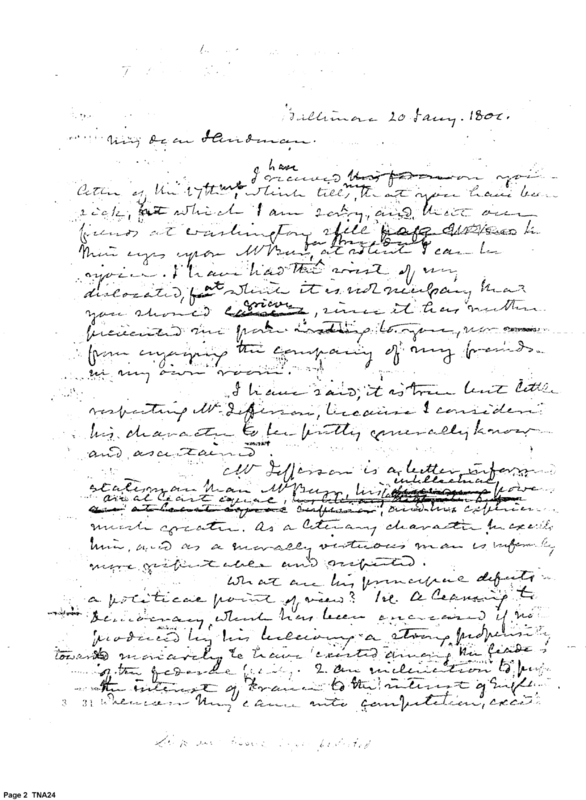 Baltimore 20 Jany. 1801.
My dear Hindman.
I have received your
letter of the 17th, which tells me that you have been
sick, at which I am sorry, and that our
friends at Washington still
their eyes upon Mr Burr, at which I can
rejoice. I have had the wrist of my
dislocated, at which it is not necessary that
you should grieve, since it has neither
prevented me from writing to you, nor
from enjoying the company of my friends
in my own room.
I have said, it is true but little
respecting Mr. Jefferson, because I consider
his character to be pretty generally known
and ascertained.
Mr Jefferson is a better informed
statesman than Mr Burr, his intellectual powers
are at least equal, and his experience
much greater. As a literary character he excells
him, and as a morally virtuous man is infinitely
more respectable and respected.
What are his principal defects in
a political point of view? 1st. A leaning to
Democracy, which has been encreased if not
produced by his believing a strong propensity
towards monarchy to have existed among the leaders
of the federal party. 2. an inclination to prefer
the interest of France to the interest of England
whenever they came into competition,
3 31
Page 2 TNA24